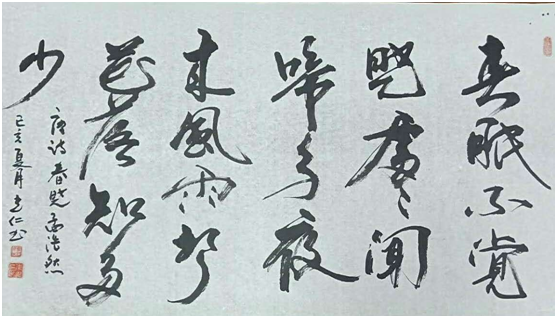 春眠不觉
晓处处闻
啼鸟夜
来风雨声
花落知多
少
唐诗春晓孟浩然
己亥夏月